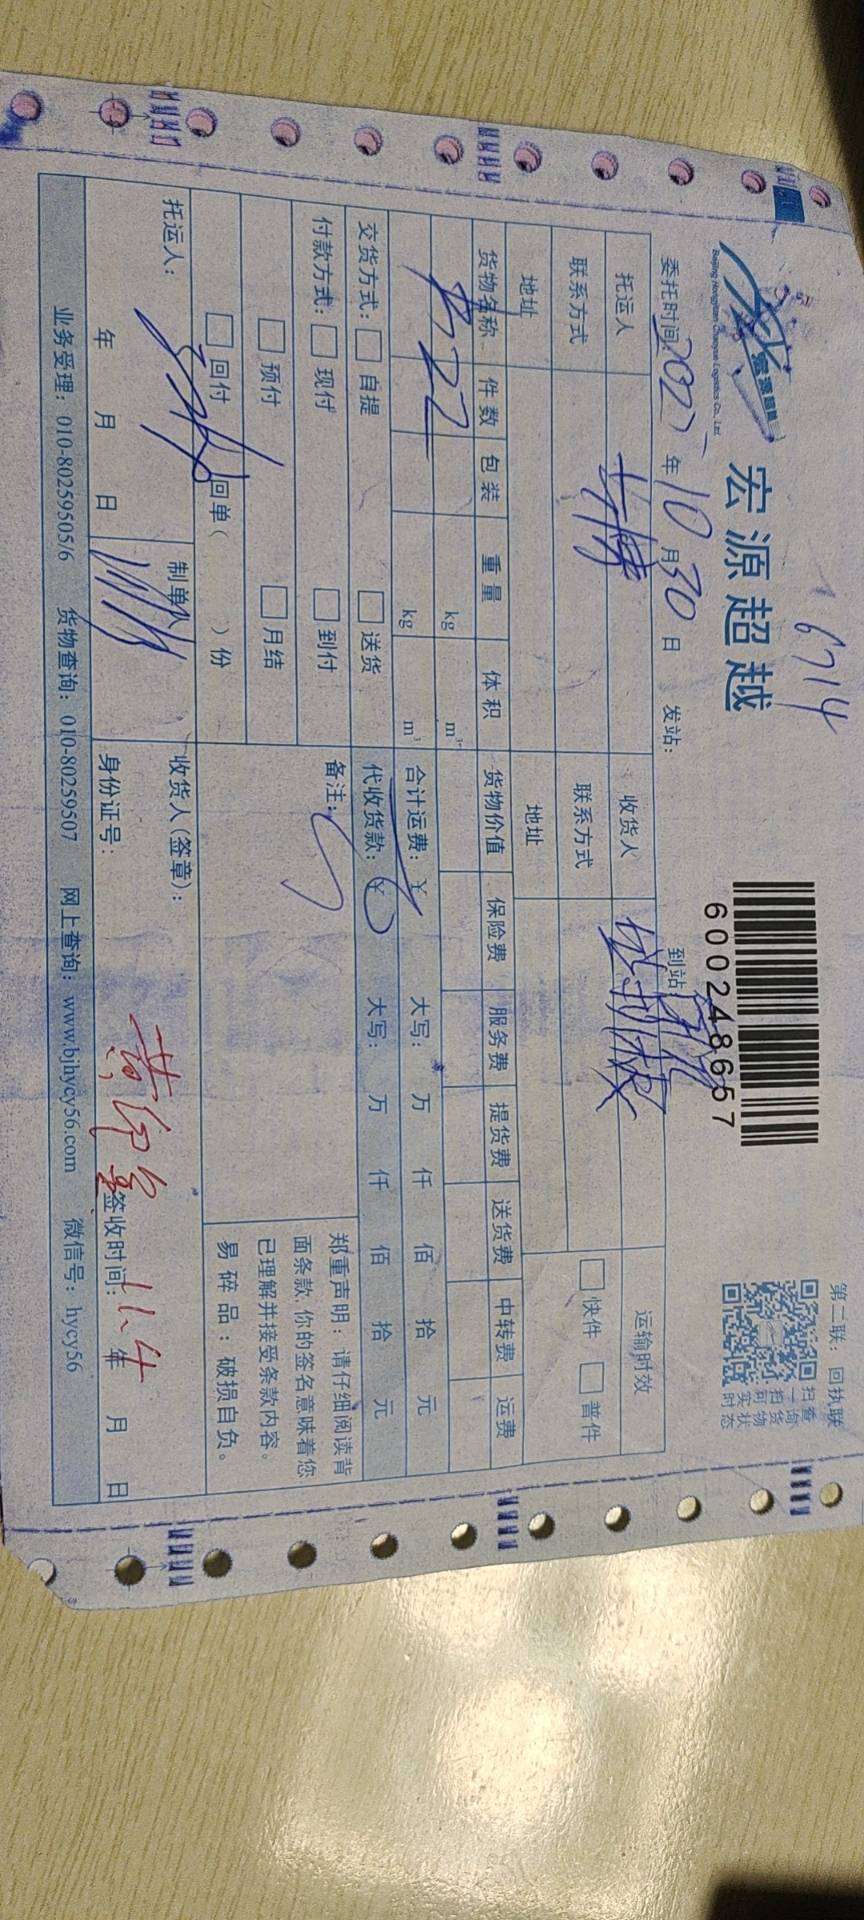 6714
第二联：回执联
宏源超越
Beijing Hongyuan Chaoyue Logistics Co., Ltd
600248657
扫一扫
查询货物
实时状态
委托时间 2025年10月30日 发站： 到站
托运人 收货人 运输时效
联系方式 联系方式 快件 普件
地址: 地址
货物名称 件数 包装 重量 体积 货物价值 保险费 服务费 提货费 送货费 中转费 运费
22 kg m³
kg m³ 合计运费：¥ 大写： 万 仟 佰 拾 元
交货方式： 自提 送货 代收货款：¥ 大写： 万 仟 佰 拾 元
付款方式： 现付 到付 备注：
预付 月结
回付 回单（ ）份
郑重声明：请仔细阅读背
面条款,你的签名意味着您
已理解并接受条款内容。
易碎品：破损自负。
托运人： 制单人 收货人(签章)：
年 月 日 身份证号： 签收时间：11.4 年 月 日
业务受理：010-80259505/6 货物查询：010-80259507 网上查询：www.bjhycy56.com 微信号：hycy56